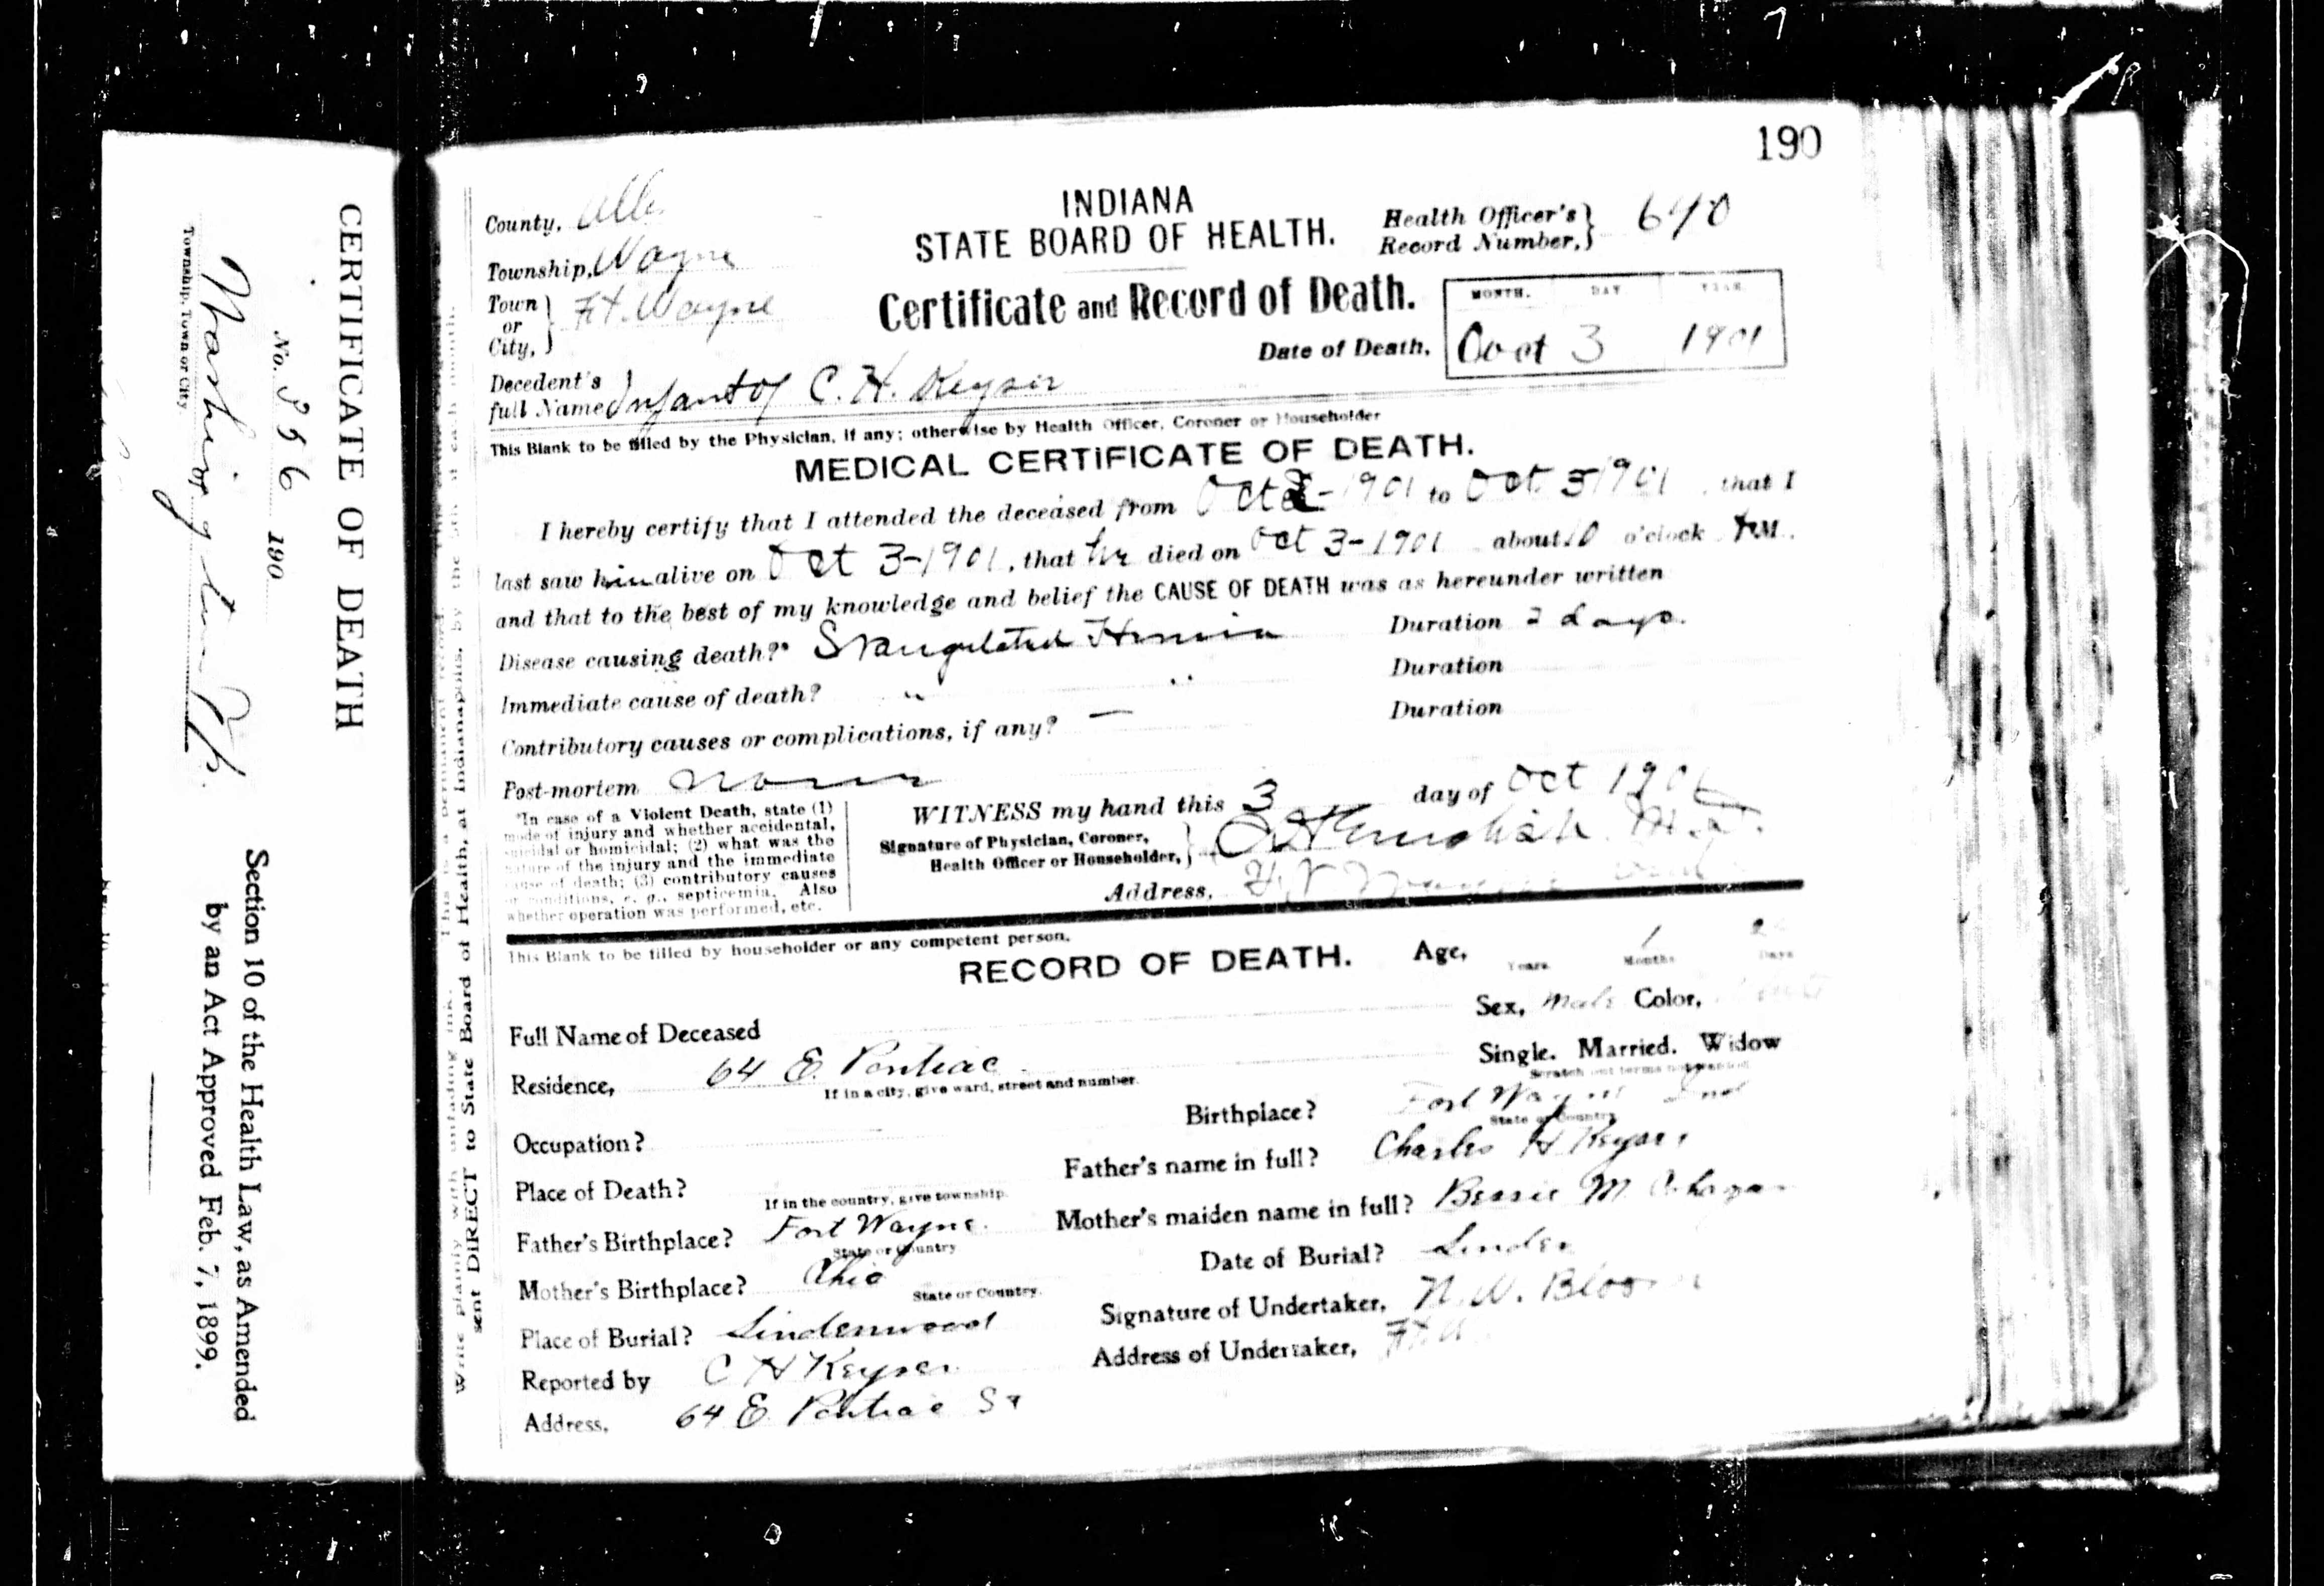 190
CERTIFICATE OF DEATH
No. 356 190
Township, Town or City
Section 10 of the Health Law, as Amended
by an Act Approved Feb. 7, 1899.
sent DIRECT to State Board of Health, at Indianapolis, by the
INDIANA
STATE BOARD OF HEALTH.
Certificate and Record of Death.
County,
Township, Wayne
Town or City, Ft. Wayne
Health Officer's Record Number,
MONTH. DAY YEAR.
Date of Death, Oct 3 1901
Decedent's full Name Infant of C. H. Keyser
This Blank to be filled by the Physician, if any; otherwise by Health Officer, Coroner or Householder
MEDICAL CERTIFICATE OF DEATH.
I hereby certify that I attended the deceased from Oct 2-1901 to Oct 3 1901, that I
last saw him alive on Oct 3-1901, that he died on Oct 3-1901 about 10 o'clock M.
and that to the best of my knowledge and belief the CAUSE OF DEATH was as hereunder written
Disease causing death?* Strangulated Hernia Duration 2 days.
Immediate cause of death? " " Duration
Contributory causes or complications, if any? — Duration
Post-mortem none
*In case of a Violent Death, state (1)
mode of injury and whether accidental,
suicidal or homicidal; (2) what was the
nature of the injury and the immediate
cause of death; (3) contributory causes
or conditions, e. g., septicemia. Also
whether operation was performed, etc.
WITNESS my hand this 3 day of Oct 1901
Signature of Physician, Coroner,
Health Officer or Householder, M.D.
Address,
This Blank to be filled by householder or any competent person.
RECORD OF DEATH.
Age, Years 1 Months Days
Sex, Male Color,
Full Name of Deceased
Single. Married. Widow
Scratch out terms not wanted
Residence, 64 E. Pontiac
If in a city, give ward, street and number.
Birthplace? Fort Wayne Ind
State or Country
Occupation?
Father's name in full? Charles H Keyser
Place of Death?
If in the country, give township.
Mother's maiden name in full? Bessie M
Father's Birthplace? Fort Wayne.
State or Country
Date of Burial? Linden
Mother's Birthplace? Ohio
State or Country.
Signature of Undertaker,
Place of Burial? Lindenwood
Address of Undertaker,
Reported by C H Keyser
Address, 64 E Pontiac St